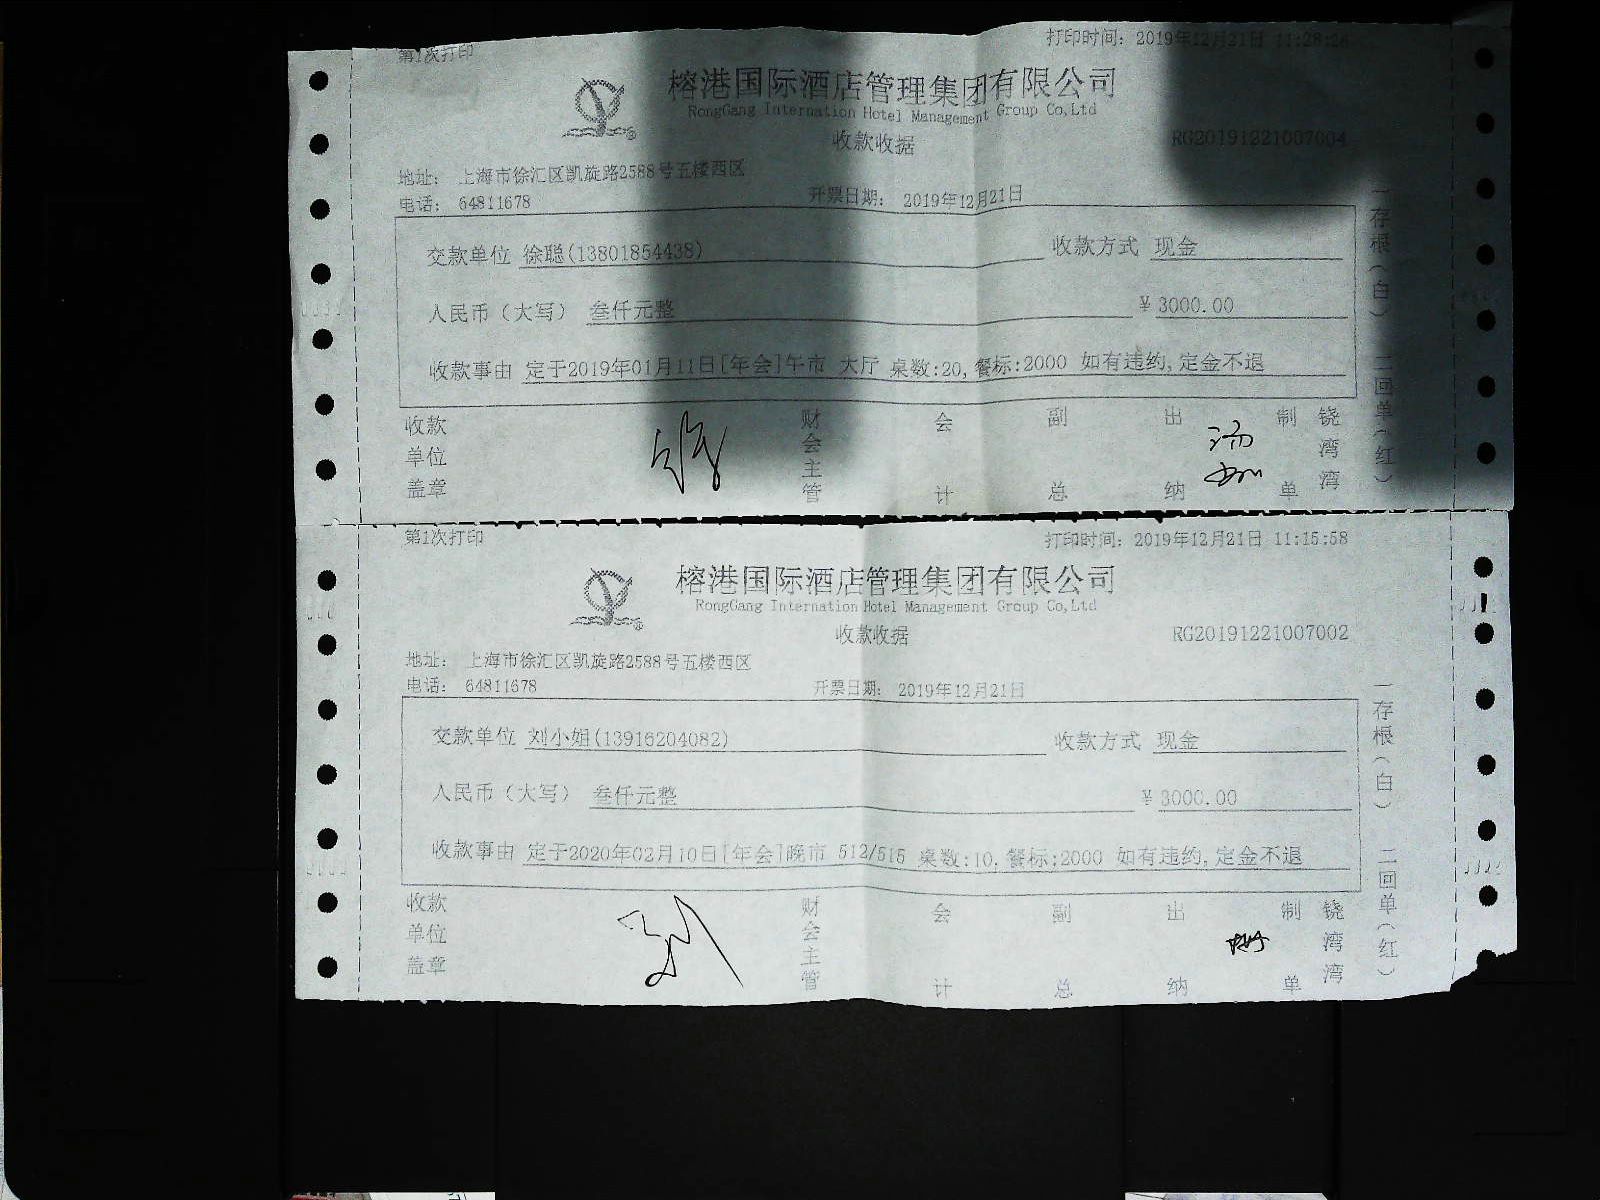 第1次打印
打印时间: 2019年12月21日 11:28:24
榕港国际酒店管理集团有限公司
RongGang Internation Hotel Management Group Co,Ltd
收款收据
RG20191221007004
地址: 上海市徐汇区凯旋路2588号五楼西区
电话: 64811678
开票日期: 2019年12月21日
交款单位 徐聪(13801854438)
收款方式 现金
人民币（大写） 叁仟元整
¥ 3000.00
收款事由 定于2019年01月11日[年会]午市 大厅 桌数:20,餐标:2000 如有违约,定金不退
收款单位盖章
财会主管
会计
副总
出纳
汤
制单
铙湾湾
一存根(白) 二回单(红)
第1次打印
打印时间: 2019年12月21日 11:15:58
榕港国际酒店管理集团有限公司
RongGang Internation Hotel Management Group Co,Ltd
收款收据
RG20191221007002
地址: 上海市徐汇区凯旋路2588号五楼西区
电话: 64811678
开票日期: 2019年12月21日
交款单位 刘小姐(13916204082)
收款方式 现金
人民币（大写） 叁仟元整
¥ 3000.00
收款事由 定于2020年02月10日[年会]晚市 512/515 桌数:10,餐标:2000 如有违约,定金不退
收款单位盖章
刘
财会主管
会计
副总
出纳
制单
铙湾湾
一存根(白) 二回单(红)